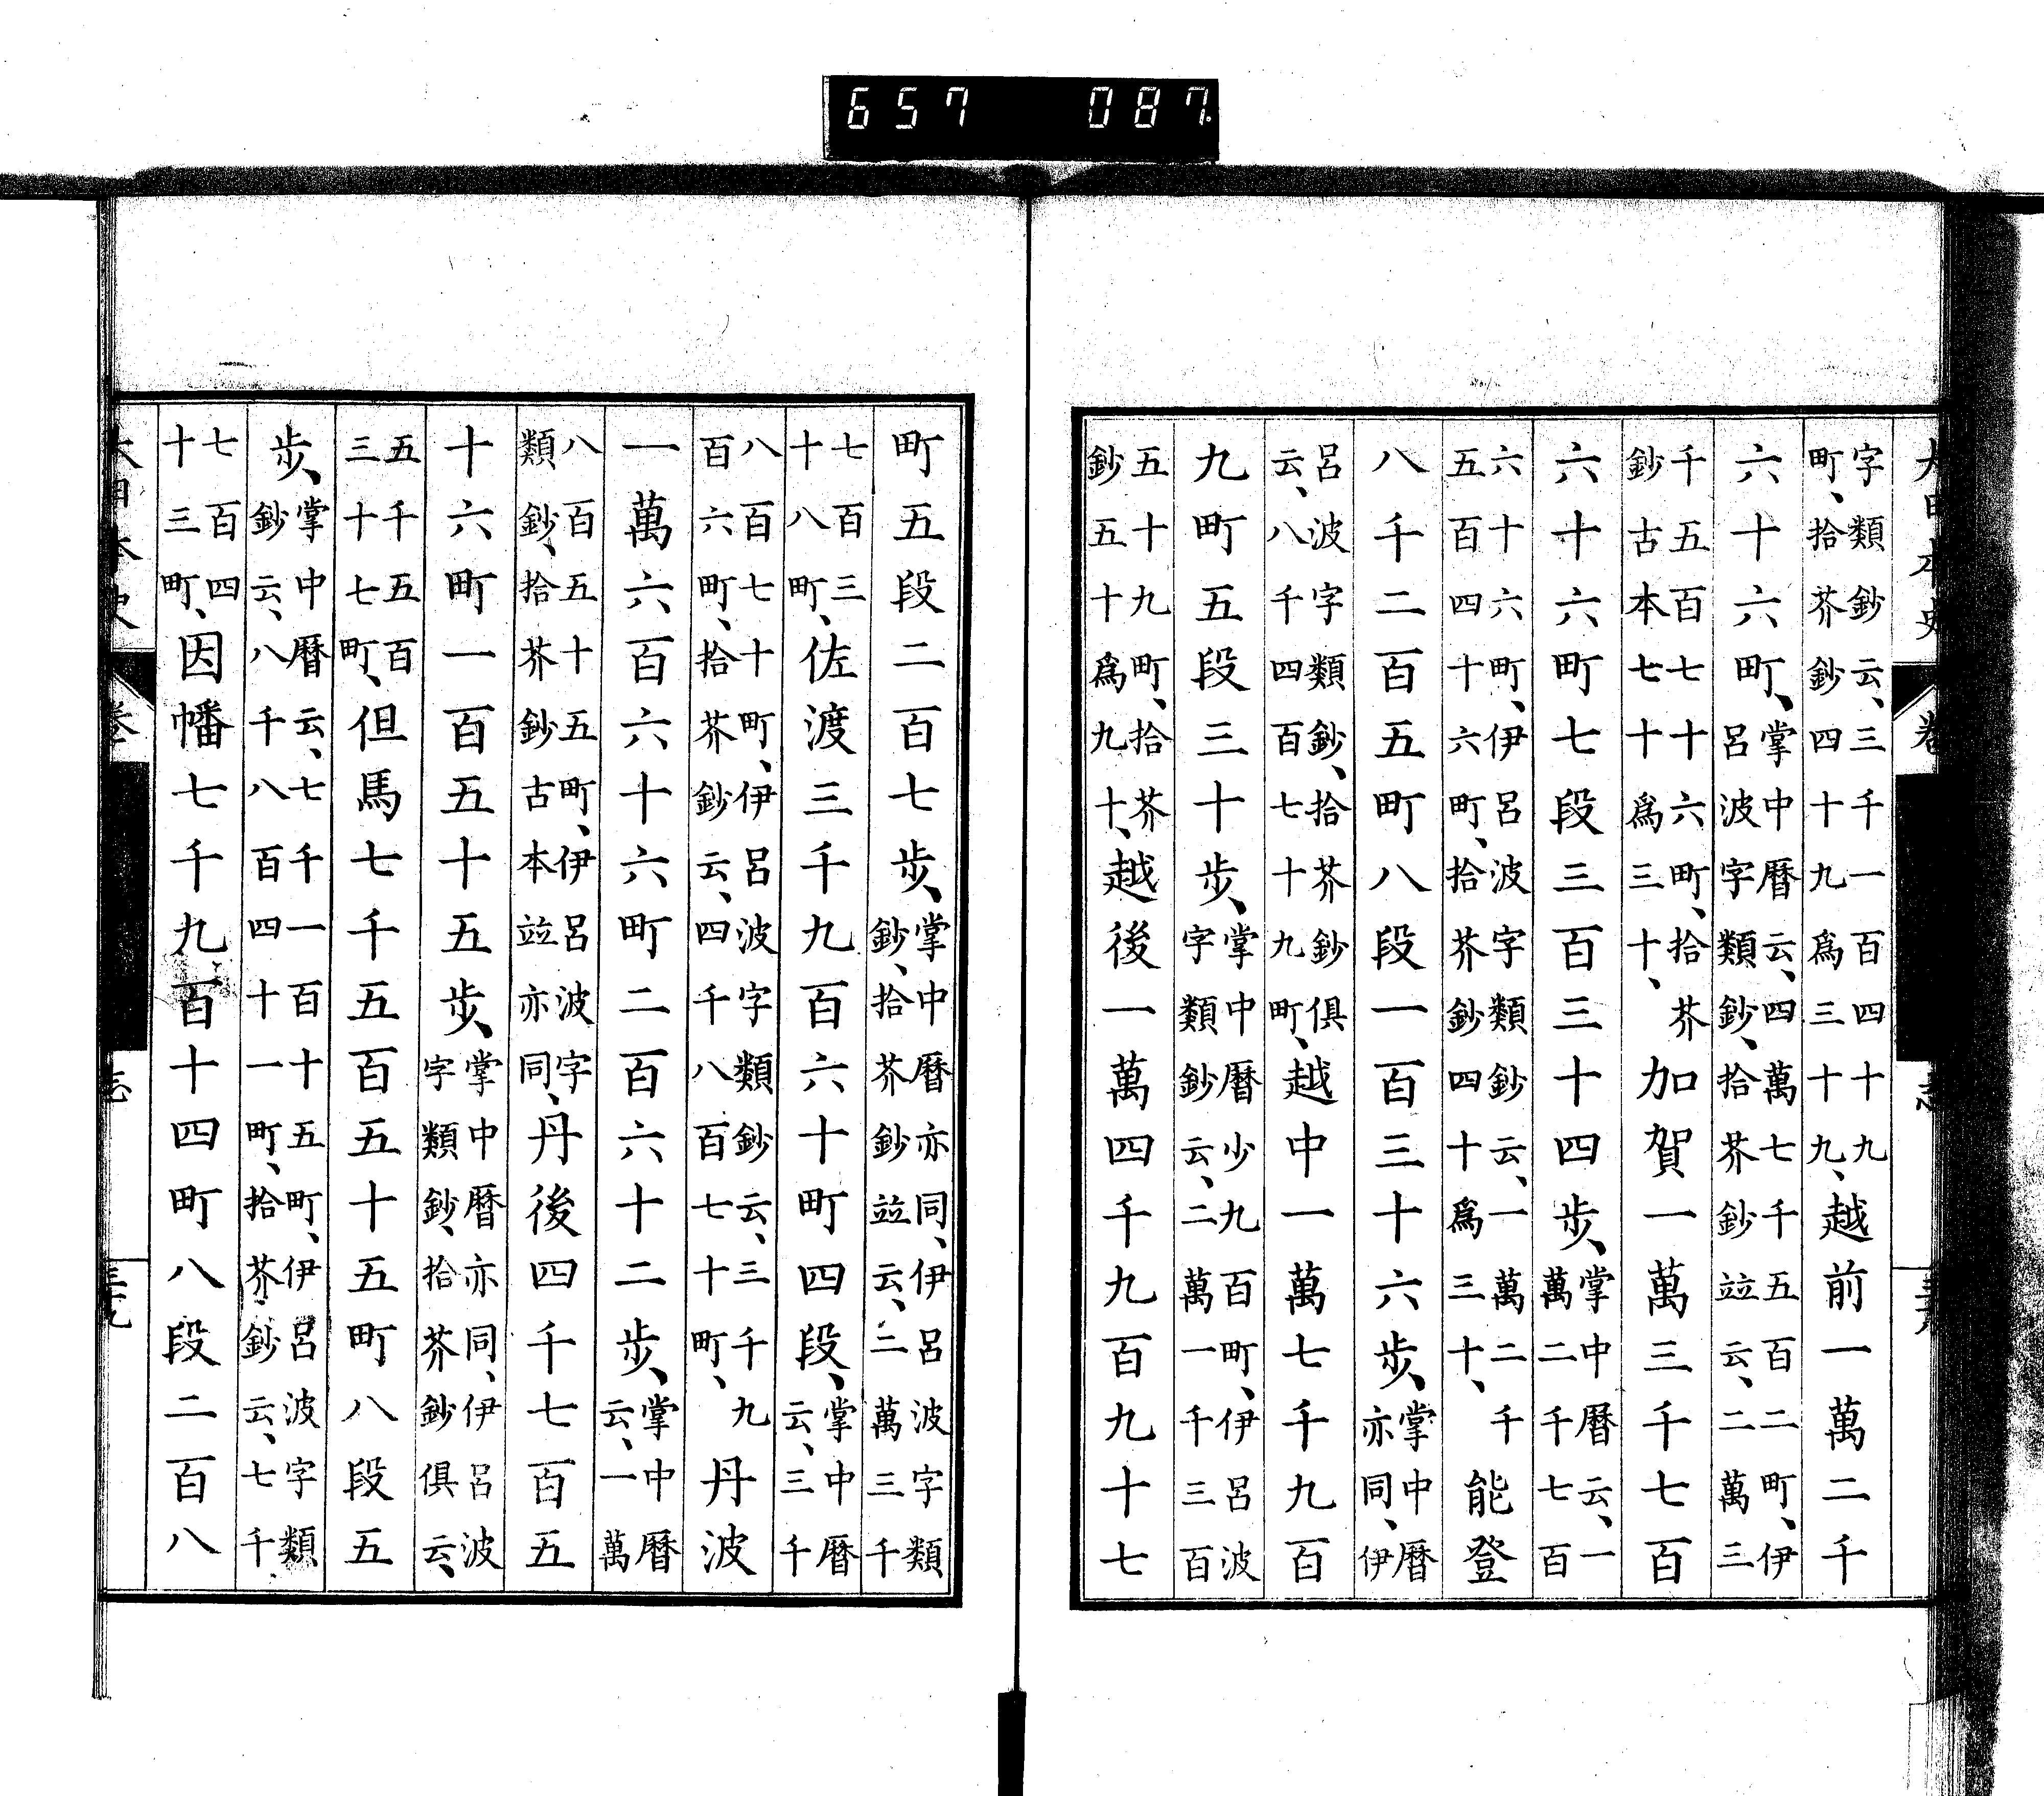 657 087
大日本史 卷 志
字類鈔云、三千一百四十九町、拾芥鈔四十九爲三十九、越前一萬二千
六十六町、掌中暦云、四萬七千五百二町、伊呂波字類鈔、拾芥鈔竝云、二萬三
千五百七十六町、拾芥鈔古本七十爲三十、加賀一萬三千七百
六十六町七段三百三十四歩、掌中暦云、一萬二千七百
六十六町、伊呂波字類鈔云、一萬二千五百四十六町、拾芥鈔四十爲三十、能登
八千二百五町八段一百三十六歩、掌中暦亦同、伊
呂波字類鈔、拾芥鈔俱云、八千四百七十九町、越中一萬七千九百
九町五段三十歩、掌中暦少九百町、伊呂波字類鈔云、二萬一千三百
五十九町、拾芥鈔五十九爲九十、越後一萬四千九百九十七
町五段二百七歩、掌中暦亦同、伊呂波字類鈔、拾芥鈔竝云、二萬三千
七百三十八町、佐渡三千九百六十町四段、掌中暦云、三千
八百七十町、伊呂波字類鈔云、三千九百六町、拾芥鈔云、四千八百七十町、丹波
一萬六百六十六町二百六十二歩、掌中暦云、一萬
八百五十五町、伊呂波字類鈔、拾芥鈔古本竝亦同、丹後四千七百五
十六町一百五十五歩、掌中暦亦同、伊呂波字類鈔、拾芥鈔俱云、
五千五百三十七町、但馬七千五百五十五町八段五
歩、掌中暦云、七千一百十五町、伊呂波字類鈔云、八千八百四十一町、拾芥鈔云、七千
七百四十三町、因幡七千九百十四町八段二百八
大日本史 卷 志